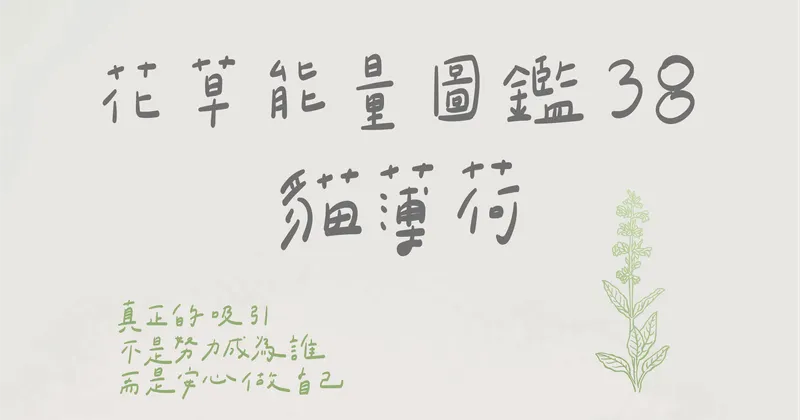 花草能量圖鑑38
貓薄荷
真正的吸引
不是努力成為誰
而是安心做自己